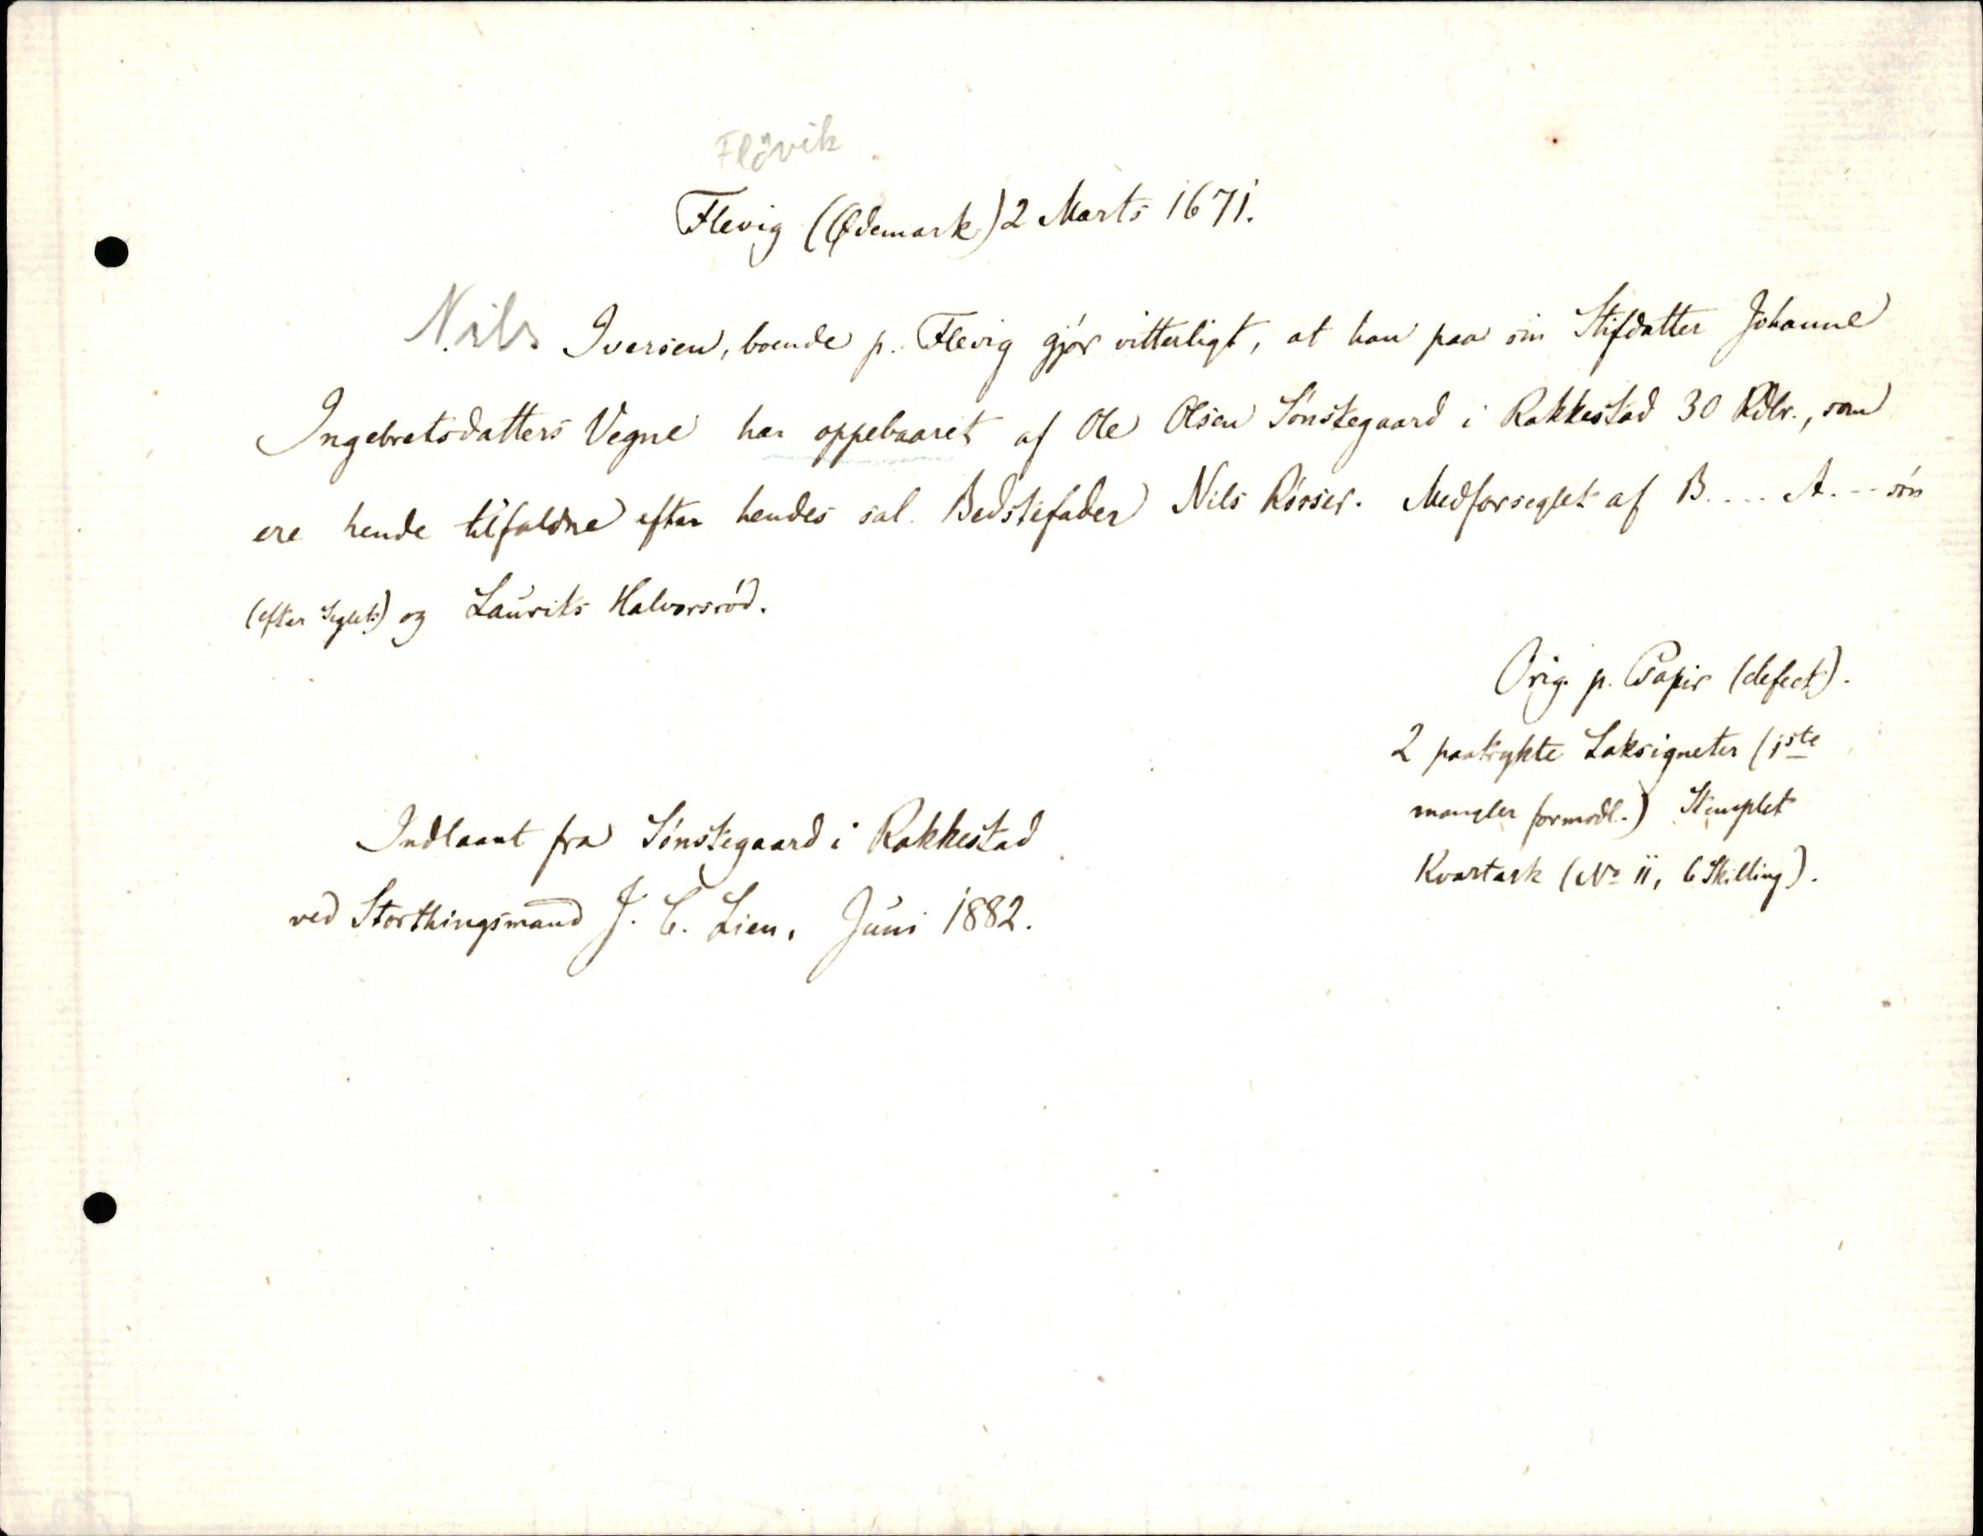 Flövik
Flevig (Ødemark) 2 Marts 1671.
Nils Iversen, boende p. Flevig gjør vitterligt, at han paa sin Stifdatter Johanne
Ingebretsdatters Vegne har oppebaaret af Ole Olsen Sønstegaard i Rakkestad 30 Rdlr., som
ere hende tilfaldne efter hendes sal. Bedstefader Nils Rørser. Medforseglet af B.... A.--søn
(efter Seglet) og Laurits Halvorsrød.
Orig. p. Papir (defect).
2 paatrykte Laksigneter (1ste
mangler formodl.) Stemplet
Kvartark (No 11, 6 Skilling).
Indlaant fra Sønstegaard i Rakkestad
ved Storthingsmand J. C. Lien, Juni 1882.